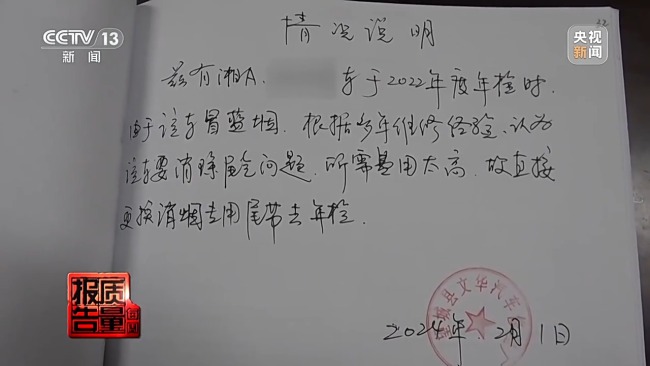 CCTV 13
新闻
央视
新闻
情况说明
兹有湘A. 车于2022年度年检时.
由于该车冒蓝烟. 根据多年维修经验. 认为
该车要消除尾气问题. 所需费用太高. 故直接
更换消烟专用尾带去年检.
望城县文华汽车
2024年 2月 1日
质量
报告